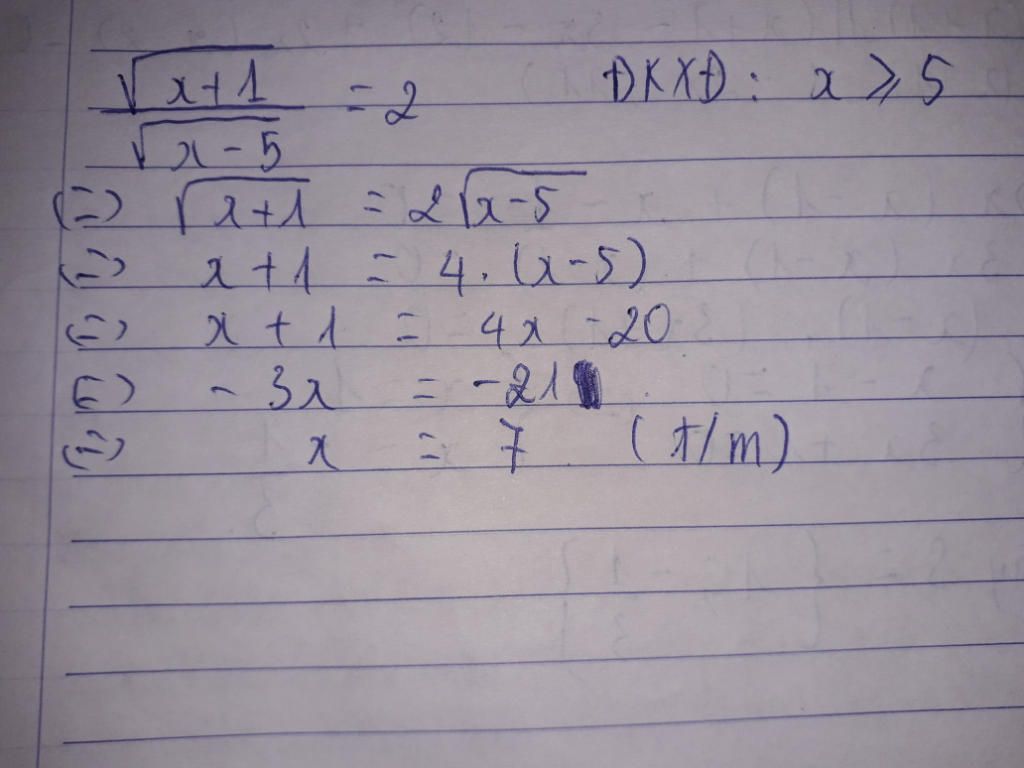 √(x+1) / √(x-5) = 2 ĐKXĐ: x ⩾ 5
(=) √(x+1) = 2√(x-5)
(=) x + 1 = 4. (x-5)
(=) x + 1 = 4x - 20
(=) - 3x = -21
(=) x = 7 (t/m)